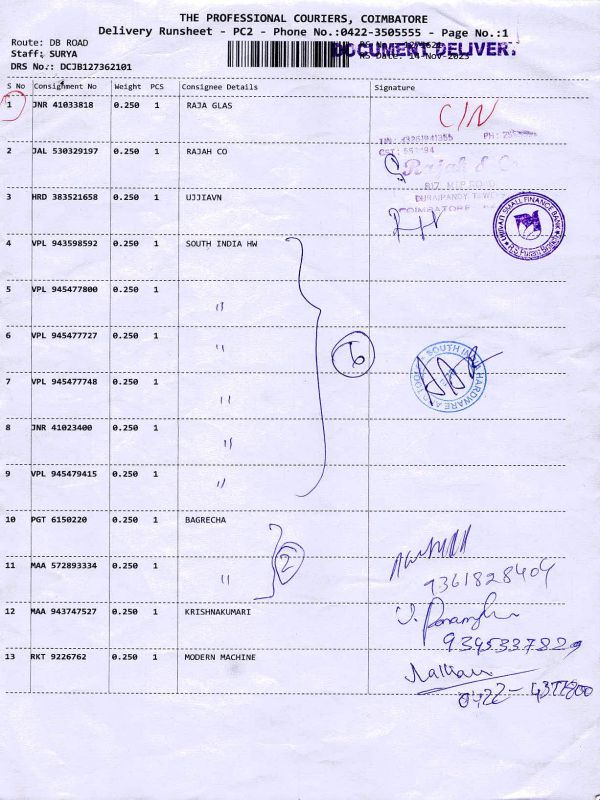 THE PROFESSIONAL COURIERS, COIMBATORE
Delivery Runsheet - PC2 - Phone No.:0422-3505555 - Page No.:1
Route: DB ROAD
Staff: SURYA
DOCUMENT DELIVERY
DRS No.: DCJB127362101
RS Date: 14-Nov-2023
S No Consignment No Weight PCS Consignee Details Signature
1 JNR 41033818 0.250 1 RAJA GLAS
C/N
2 JAL 530329197 0.250 1 RAJAH CO
Rajah & Co
817, MTP ROAD
COIMBATORE
3 HRD 383521658 0.250 1 UJJIAVN
UJJIVAN SMALL FINANCE BANK
4 VPL 943598592 0.250 1 SOUTH INDIA HW
5 VPL 945477800 0.250 1 "
6 VPL 945477727 0.250 1 "
6
SOUTH INDIA HARDWARE AND TOOLS
7 VPL 945477748 0.250 1 "
8 JNR 41023400 0.250 1 "
9 VPL 945479415 0.250 1 "
10 PGT 6150220 0.250 1 BAGRECHA
2
11 MAA 572893334 0.250 1 "
9361828409
12 MAA 943747527 0.250 1 KRISHNAKUMARI
9345337829
13 RKT 9226762 0.250 1 MODERN MACHINE